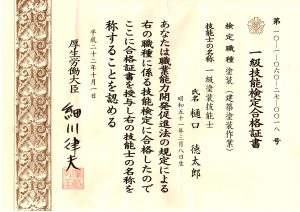 第一〇一-〇六〇-二七-〇〇一八号
一級技能検定合格証書
検定職種 塗装(建築塗装作業)
技能士の名称 一級塗装技能士
氏名 樋口 徳太郎
昭和五十一年三月八日生
あなたは職業能力開発促進法の規定による
右の職種に係る技能検定に合格したので
ここに合格証書を授与し右の技能士の名称を
称することを認める
平成二十二年十月一日
厚生労働大臣 細川律夫